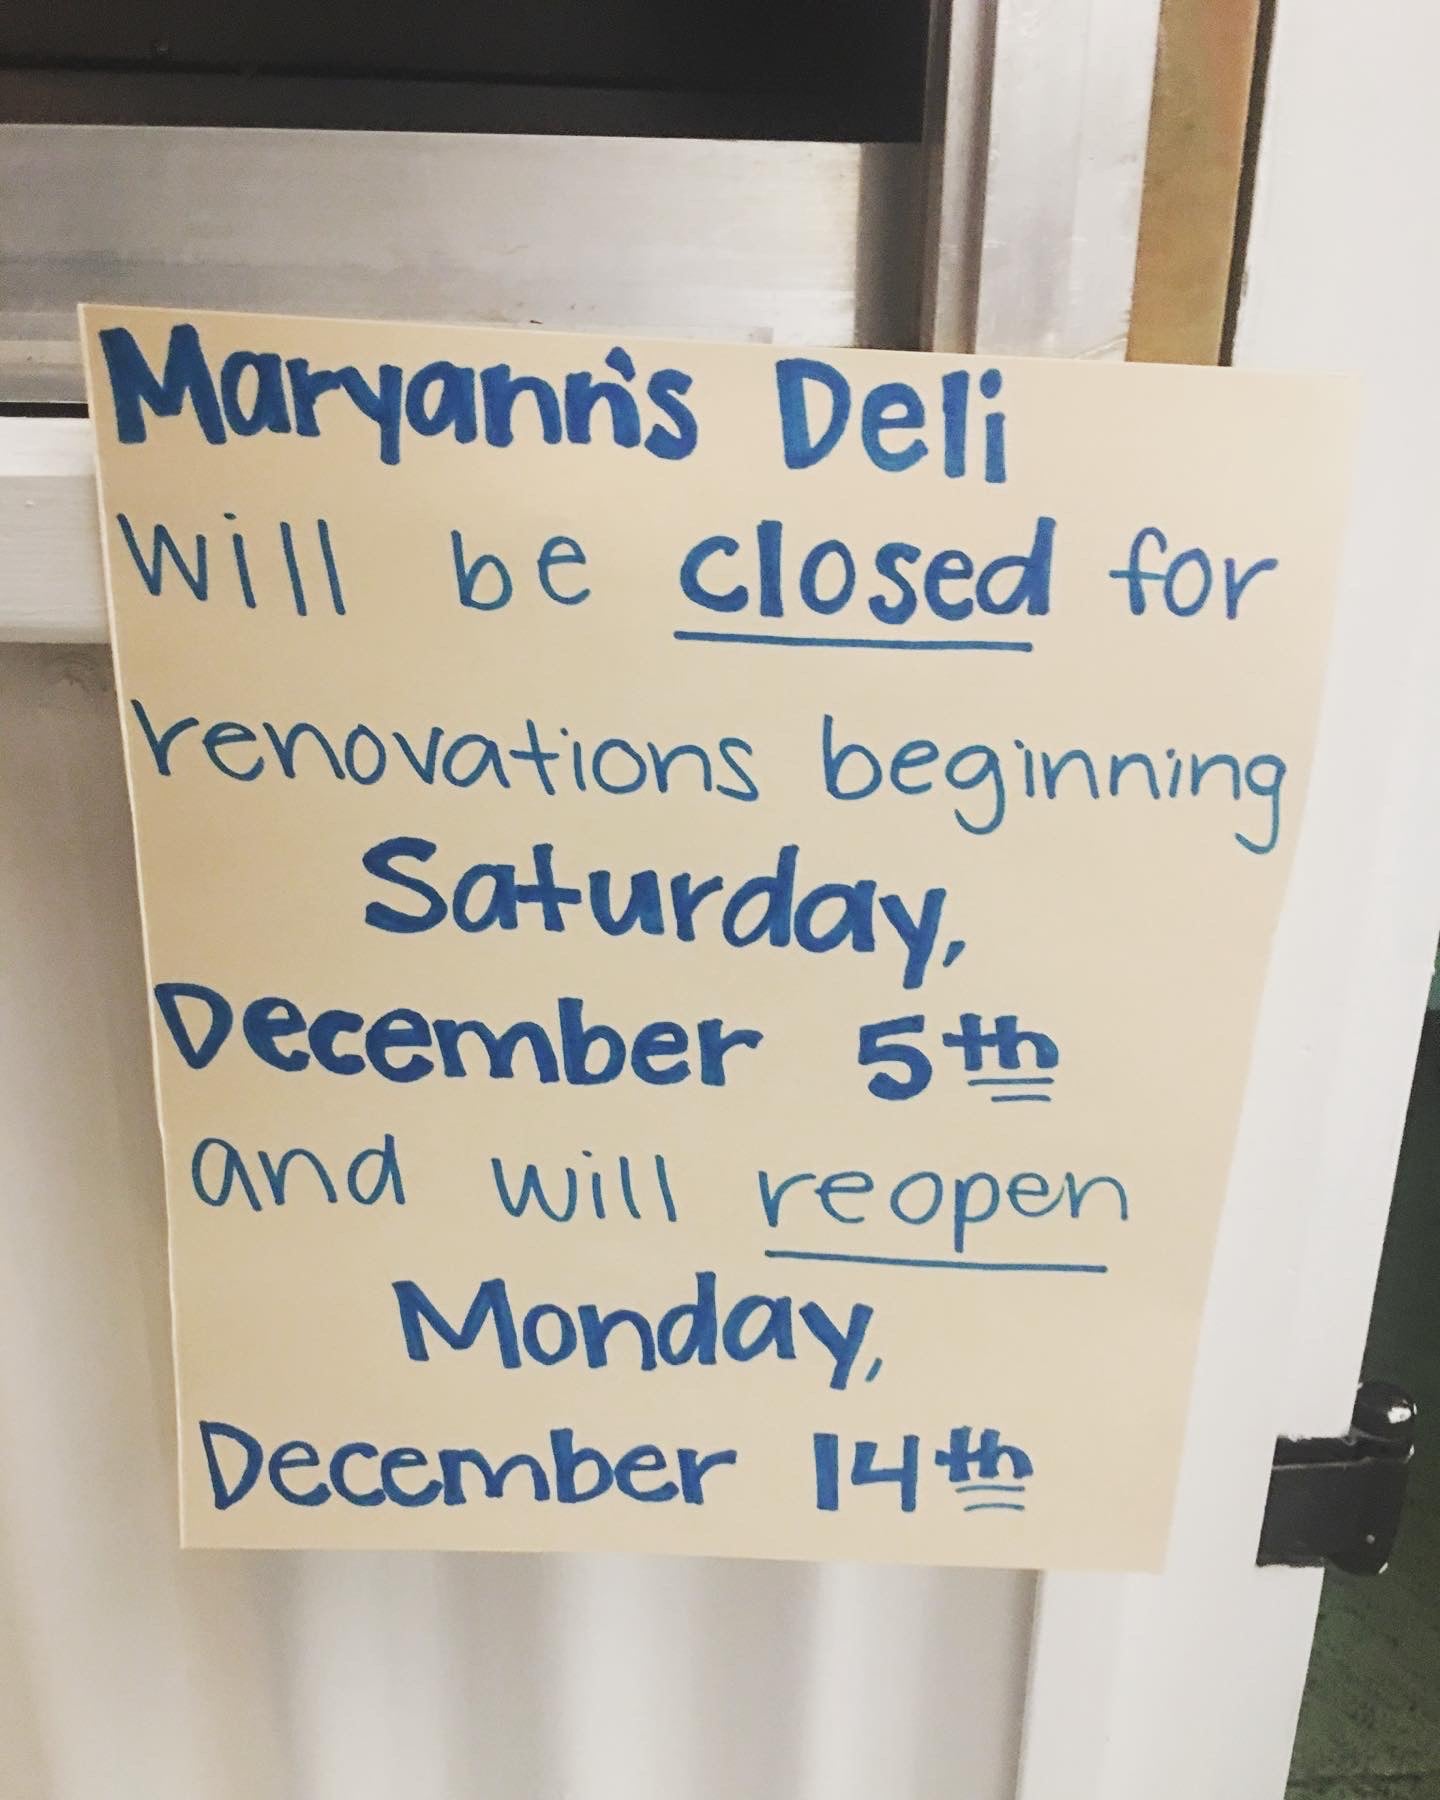 Maryann's Deli
will be closed for
renovations beginning
Saturday,
December 5th
and will reopen
Monday,
December 14th